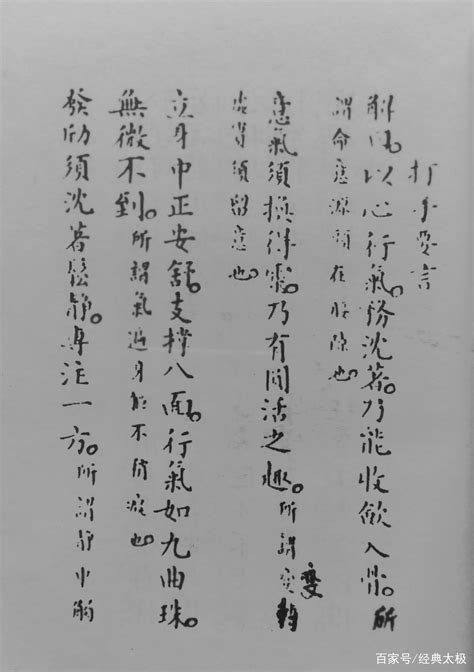 打手要言
解曰。以心行氣。務沈著。乃能收斂入骨。所
謂命意源頭在腰隙也。
意氣須換得靈。乃有圓活之趣。所謂变變轉
虛實須留意也。
立身中正安舒。支撐八面。行氣如九曲珠。
無微不到。所謂氣遍身軀不稍也
發勁須沈著鬆靜。專注一方。所謂靜中觸
百家号/经典太极